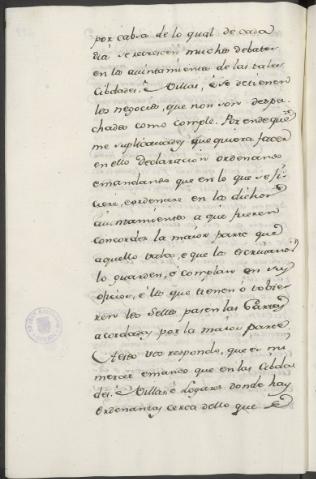 por cabsa de lo qual de cada
dia se recrescen muchos debates
en los aiuntamientos de las tales
Cibdades, é Villas, é se detienen
los negocios, que non son despa
chados como comple. Por ende que
me suplicavades que quiera facer
en ello declaracion ordenando
é mandando que en lo que se fi
ciere, é ordenare en los dichos
aiuntamientos a que fueren
concordes la maior parte que
aquello vala, é que los escrivanos
lo guarden, é complan en su
oficio, é los que tienen ó tobie
ren los sellos pasen las Cartas
acordadas por la maior parte.
A esto vos respondo, que es mi
merced é mando que en las Cibda
des, Villas, é Logares donde hay
ordenanzas cerca dello que se